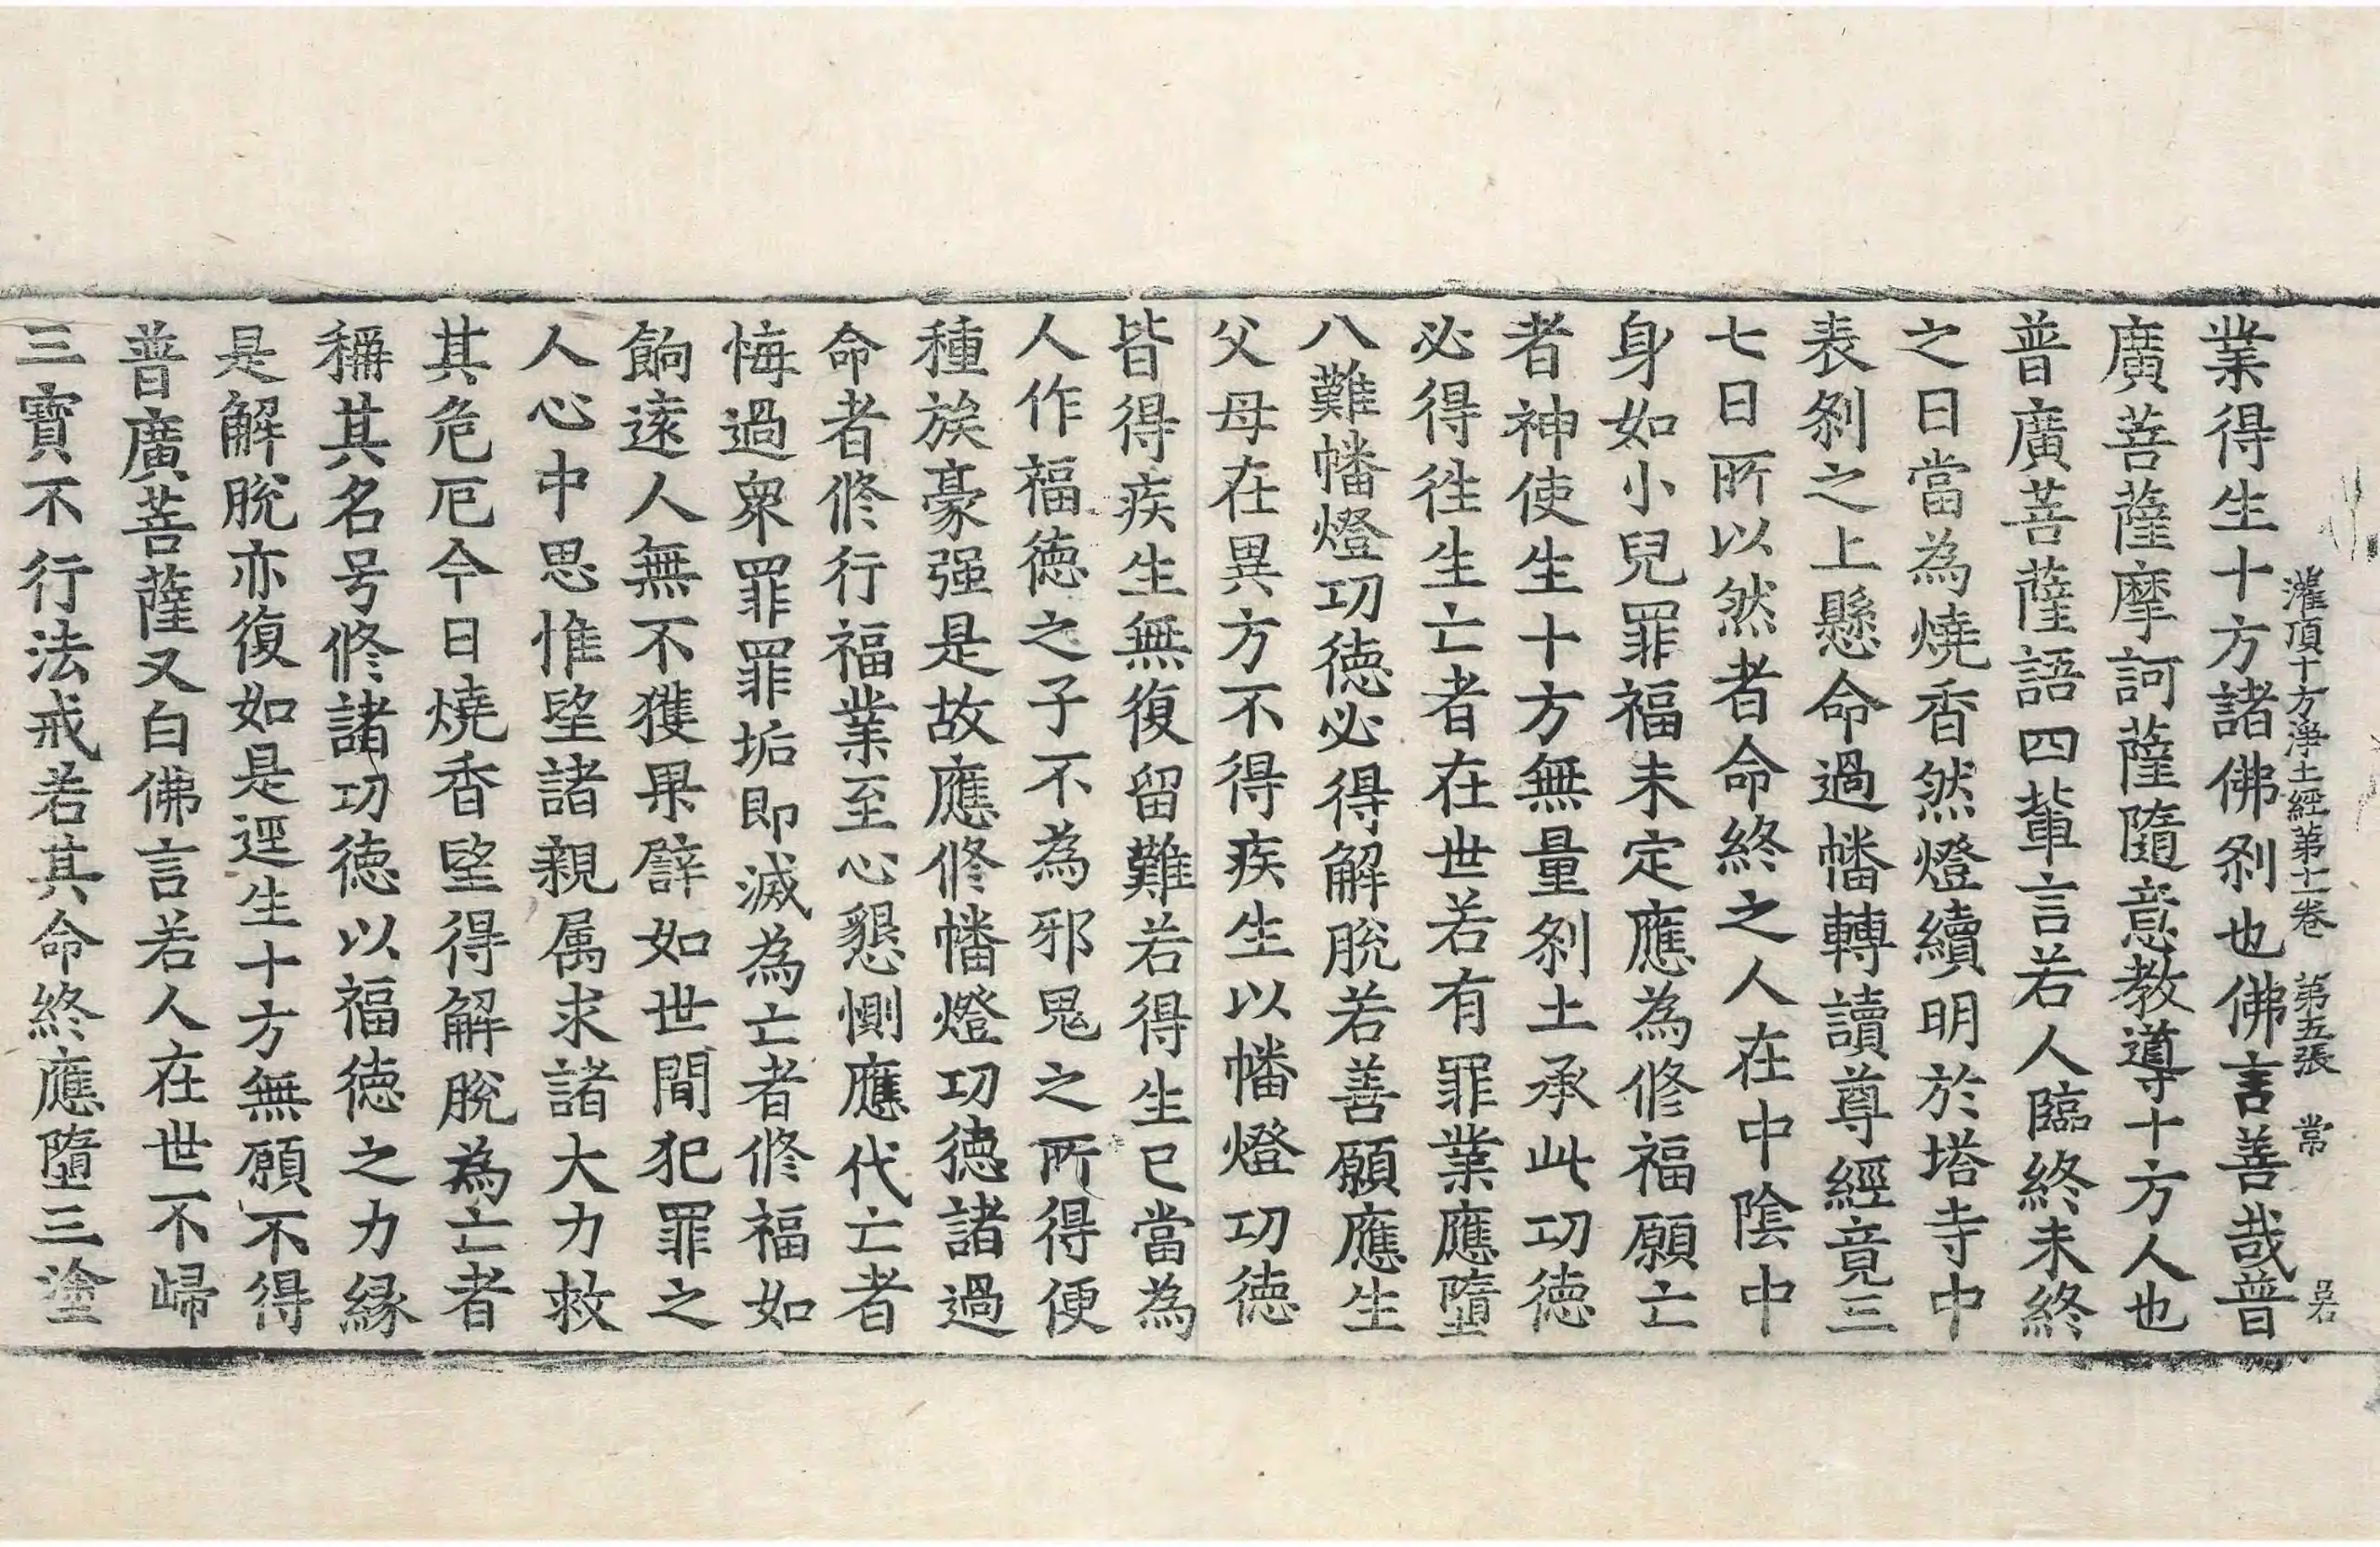 灌頂十方淨土經第十一卷　第五張　常　呂
業得生十方諸佛刹也佛言善哉普
廣菩薩摩訶薩隨意教導十方人也
普廣菩薩語四輩言若人臨終未終
之日當為燒香然燈續明於塔寺中
表刹之上懸命過幡轉讀尊經竟三
七日所以然者命終之人在中陰中
身如小兒罪福未定應為修福願亡
者神使生十方無量刹土承此功德
必得徃生亡者在世若有罪業應墮
八難幡燈功德必得解脫若善願應生
父母在異方不得疾生以幡燈功德
皆得疾生無復留難若得生已當為
人作福德之子不為邪鬼之所得便
種族豪强是故應修幡燈功德諸過
命者修行福業至心懇惻應代亡者
悔過衆罪罪垢即滅為亡者修福如
餉遠人無不獲果譬如世間犯罪之
人心中思惟望諸親属求諸大力救
其危厄今日燒香望得解脫為亡者
稱其名号修諸功德以福德之力縁
是解脫亦復如是逕生十方無願不得
普廣菩薩又白佛言若人在世不歸
三寶不行法戒若其命終應墮三塗